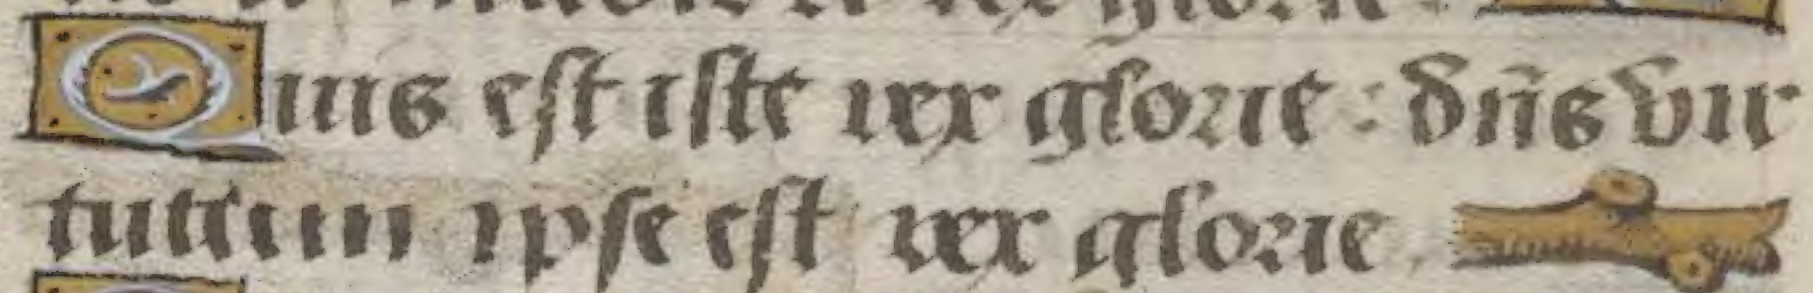 Quis est iste rex glorie : dñs vir
tutum ipse est rex glorie .